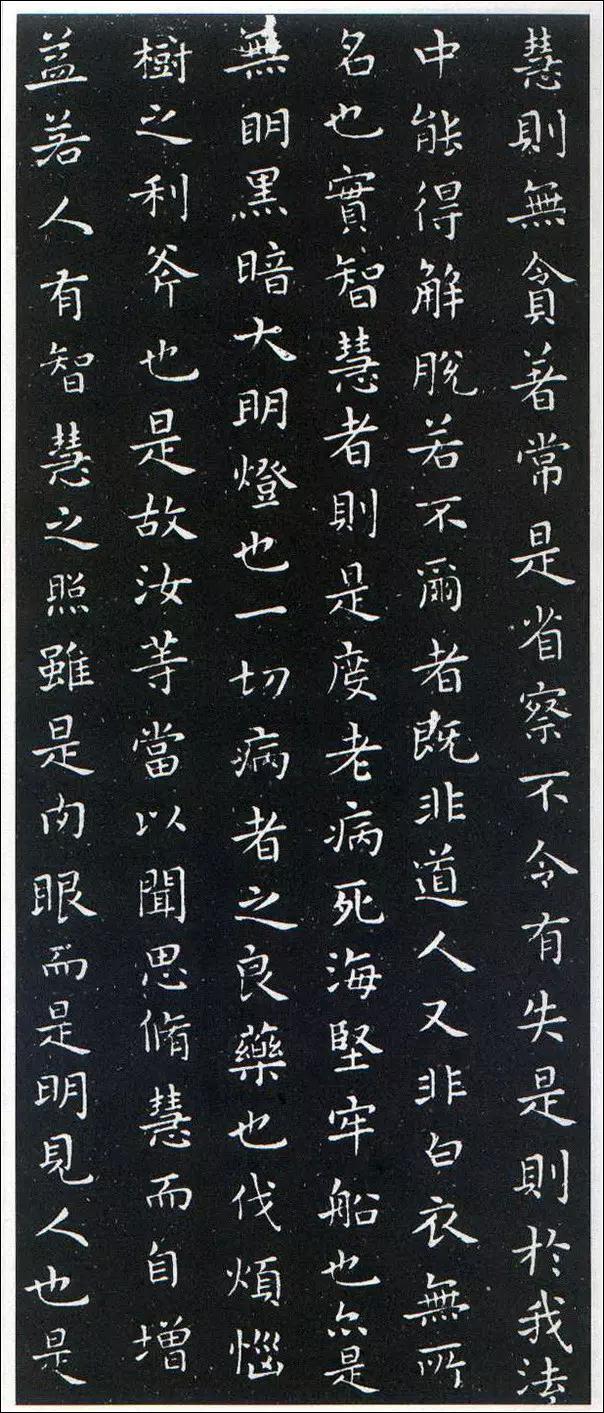 慧則無貪著常是省察不令有失是則於我法
中能得解脫若不爾者既非道人又非白衣無所
名也實智慧者則是度老病死海堅牢船也亦是
無明黑暗大明燈也一切病者之良藥也伐煩惱
樹之利斧也是故汝等當以聞思脩慧而自增
益若人有智慧之照雖是肉眼而是明見人也是